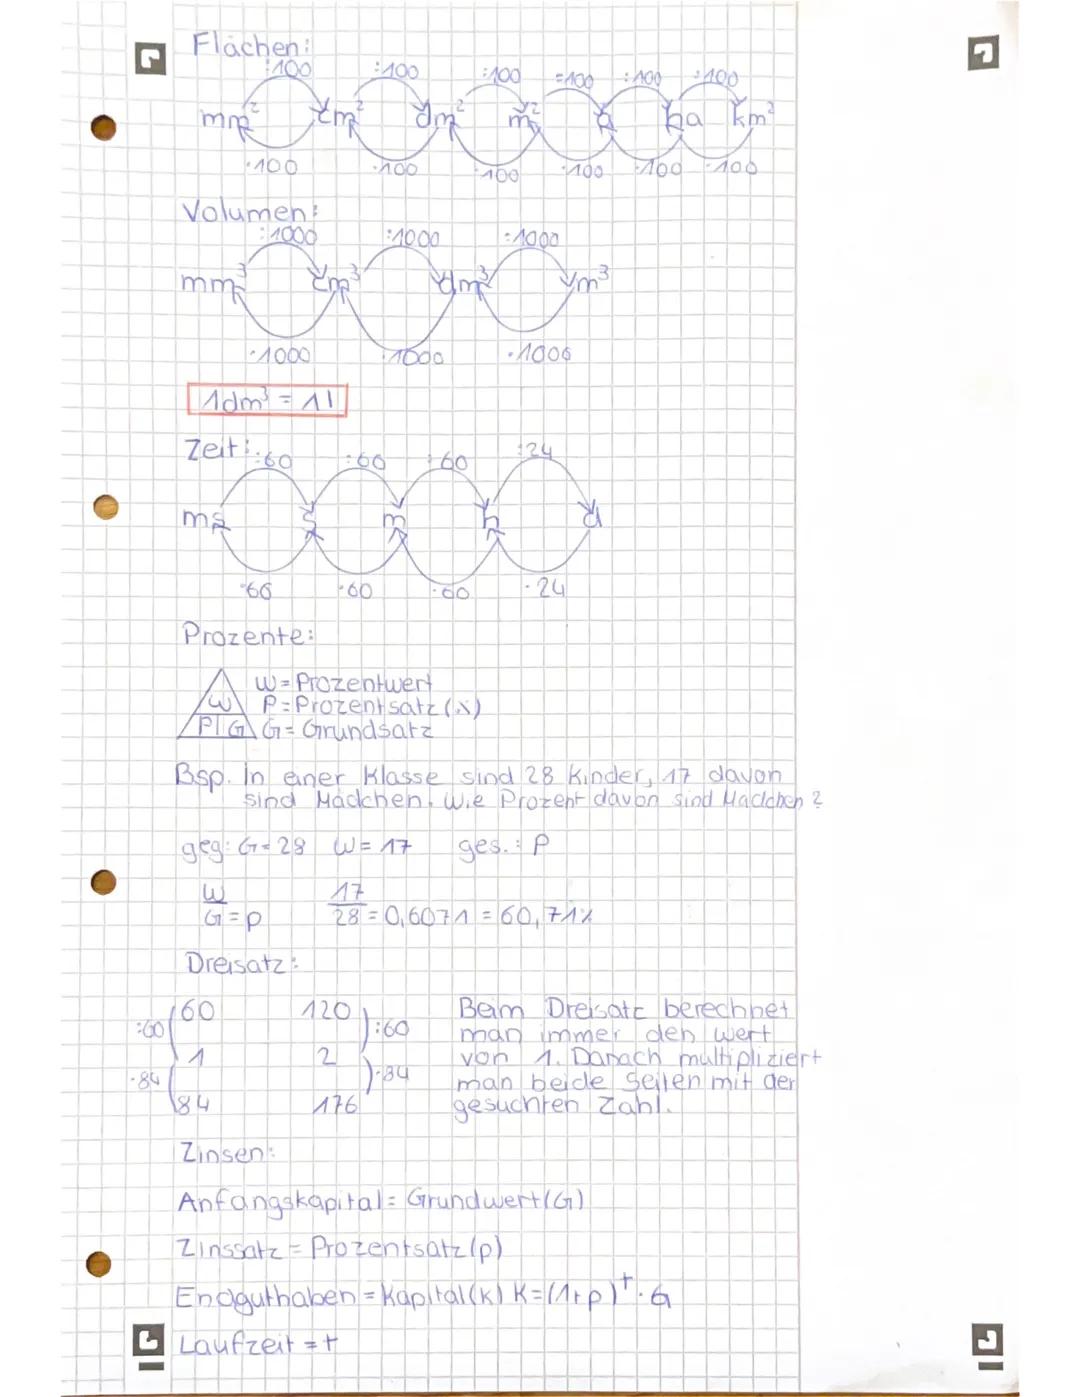 Flächen:
:100 :100 :100 =100 :100 :100
mm² cm² dm² m² a ha km²
·100 ·100 ·100 ·100 ·100 ·100
Volumen:
:1000 :1000 :1000
mm³ cm³ dm³ m³
·1000 ·1000 ·1000
1dm³ = 1l
Zeit: :60 :60 :60 :24
ms s m h d
·60 ·60 ·60 ·24
Prozente:
W = Prozentwert
W P = Prozentsatz (%)
P G G = Grundsatz
Bsp. In einer Klasse sind 28 Kinder, 17 davon
sind Mädchen. Wie Prozent davon sind Mädchen?
geg: G = 28 W = 17 ges.: P
W 17
G = p 28 = 0,6071 = 60,71%
Dreisatz:
60 120 Beim Dreisatz berechnet
:60 :60 man immer den Wert
1 2 von 1. Danach multipliziert
·84 ·84 man beide Seiten mit der
84 176 gesuchten Zahl.
Zinsen:
Anfangskapital = Grundwert (G)
Zinssatz = Prozentsatz (p)
Endguthaben = Kapital (K) K = (1+p)^t · G
Laufzeit = t